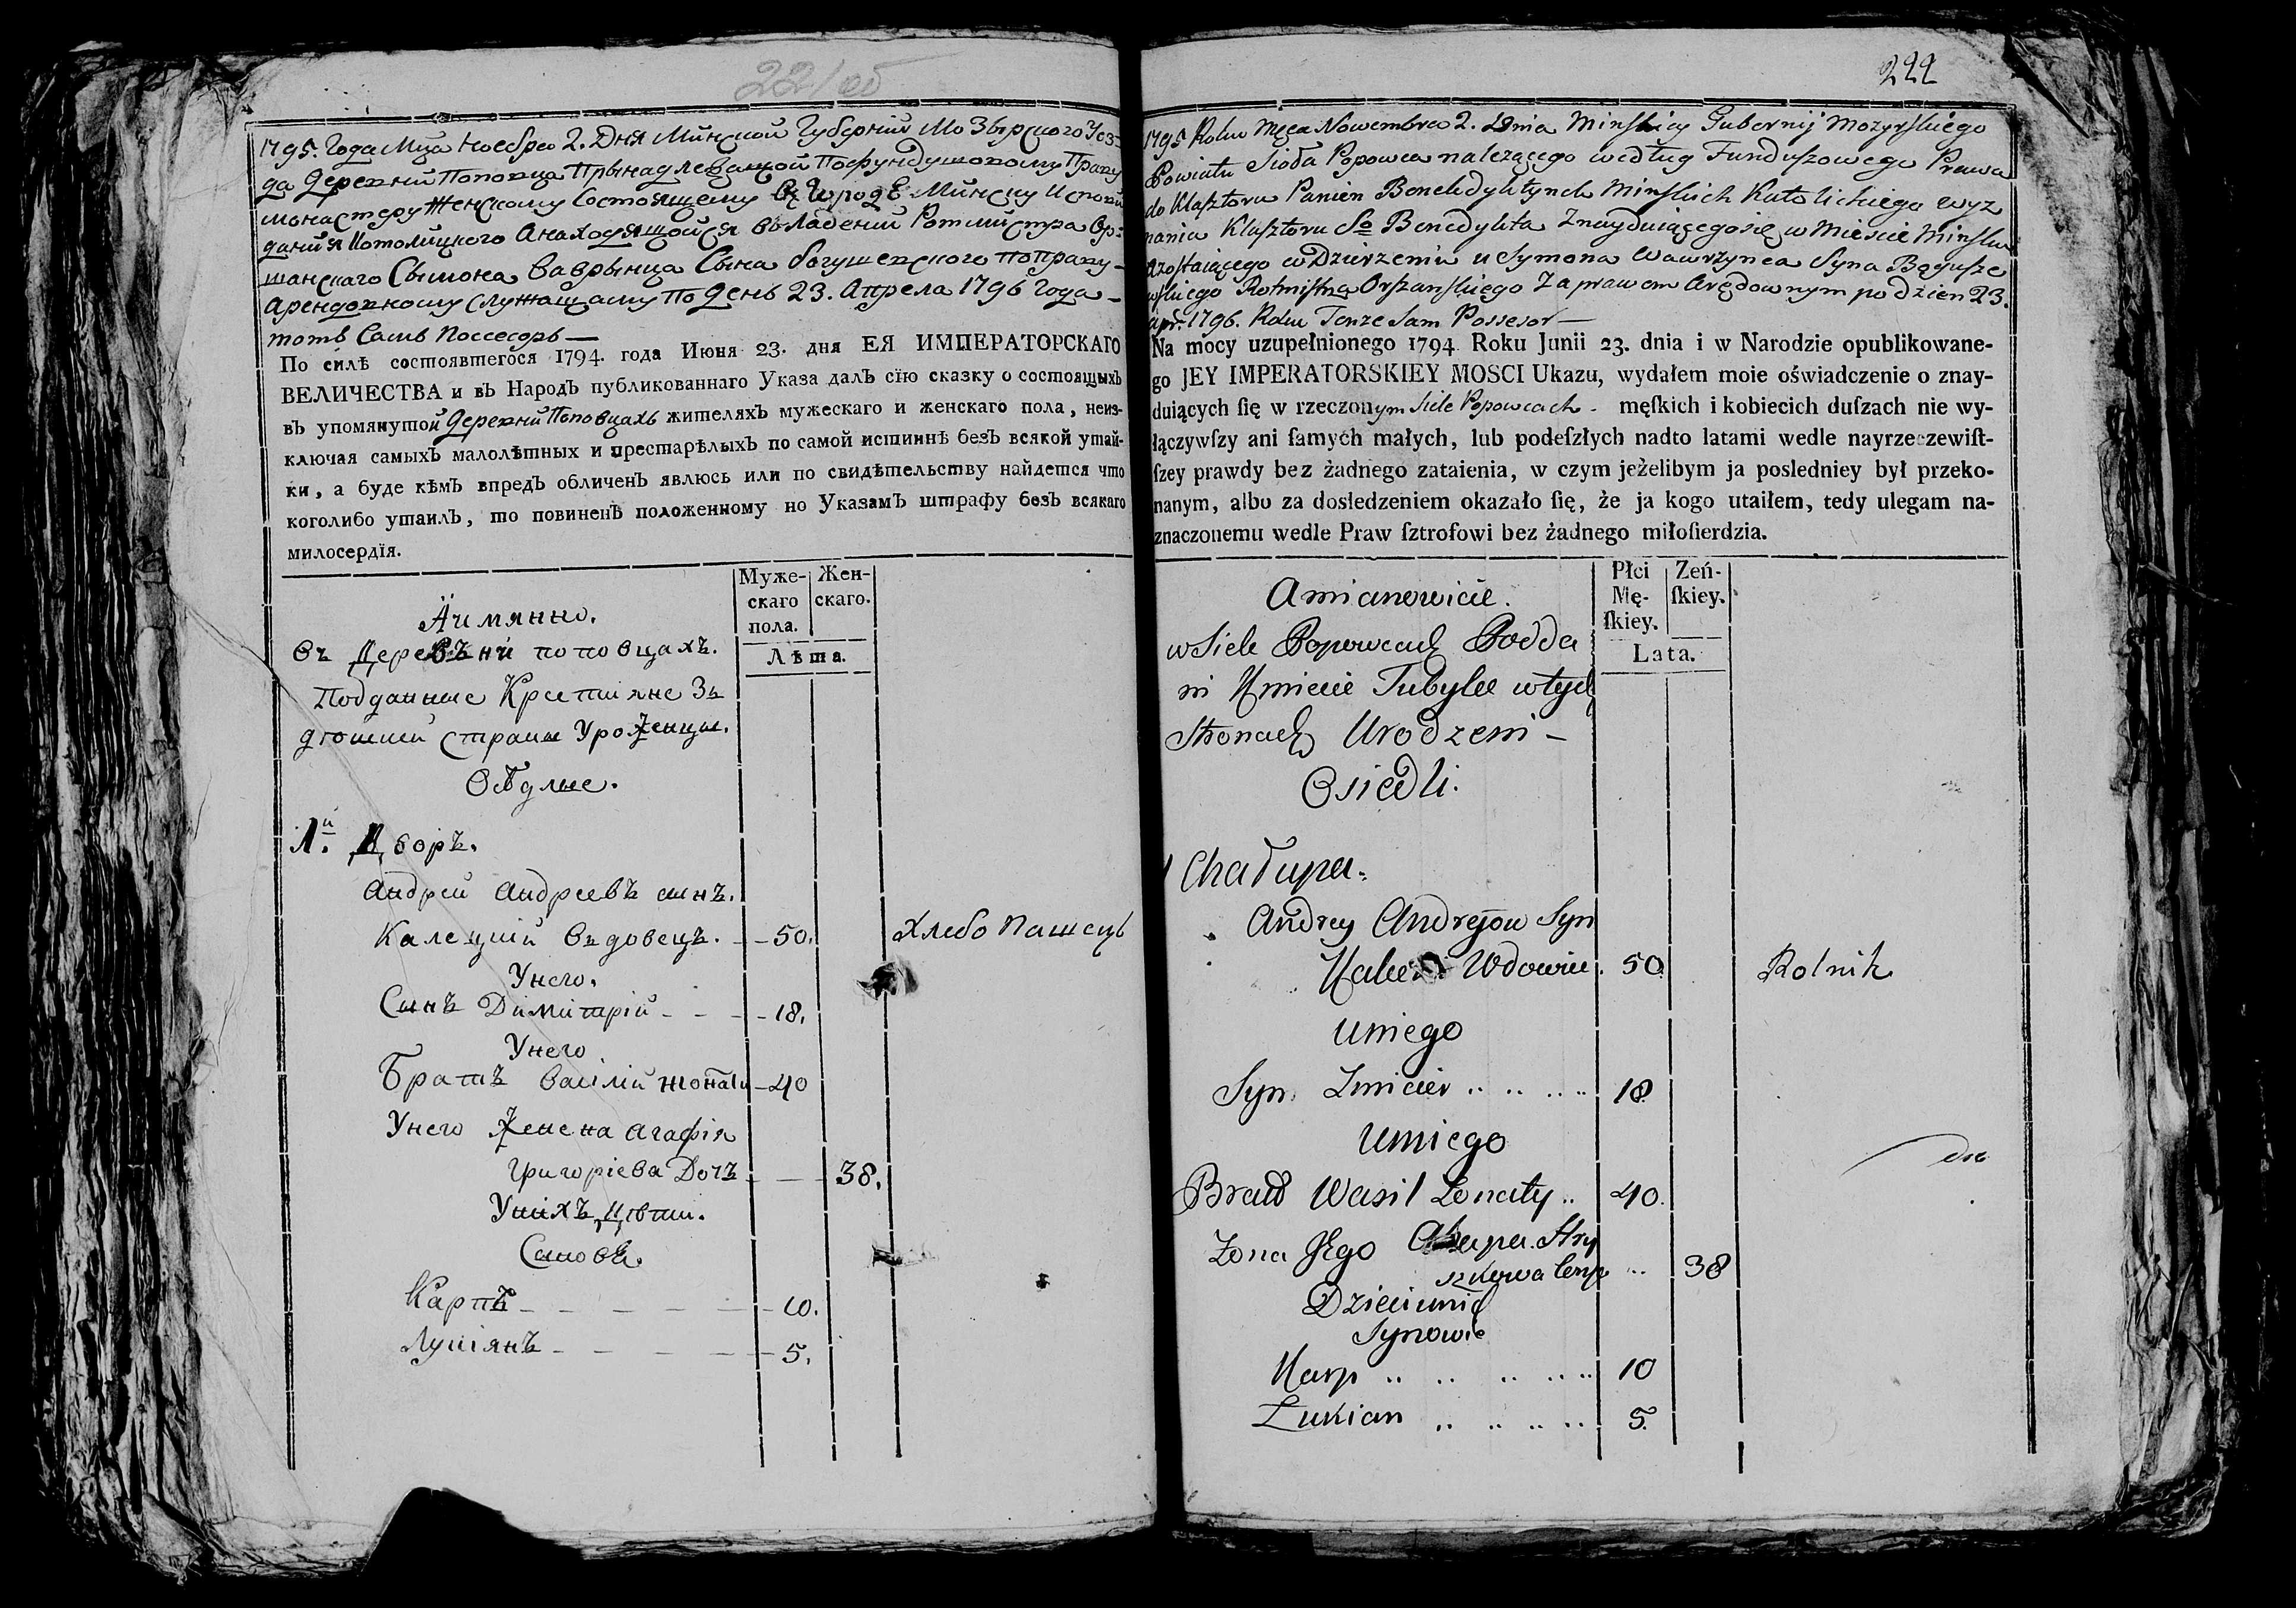 221 об
1795. Года Мца Ноебра 2. Дня Минской Губерний Мозырского Уез-
да Деревни Поповца Прынадлежащой По фундушовому Праву
монастеру Женскому Состоящему въ Городе Минску Испови
данйя Католицкого Анаходящойся въ Ладений Ротмистра Ор-
шанскаго Сымона Ваврынца Сына Богушевского по праву
Арендовному служащему По День 23. Апрела 1796 Года
тотъ Самъ Поссесоръ —
По силѣ состоявшегося 1794. года Июня 23. дня ЕЯ ИМПЕРАТОРСКАГО
ВЕЛИЧЕСТВА и въ Народъ публикованнаго Указа далъ сїю сказку о состоящыхъ
въ упомянутой Деревни Поповцахъ жителяхъ мужескаго и женскаго пола, неиз-
ключая самыхъ малолѣтных и престарѣлыхъ по самой истиннѣ безъ всякой утай-
ки, а буде кѣмъ впредъ обличенъ явлюсь или по свидѣтельству найдется что
коголибо утаилъ, то повиненъ положенному по Указамъ штрафу безъ всякаго
милосердїя.
Муже-скаго пола. Жен-скаго.
Лѣта.
Аимянно.
Въ Деревѣни поповцахъ.
Подданные Крестияне Зъ
дѣошней страны Уроженцы.
Осѣдлые.
1й. Дворъ.
Андрей Андреевъ сынъ.
Калецкий Въдовецъ. - - 50. Хлебо Пашецъ
Унего.
Сынъ Димитрій - - - 18.
Унего
Братъ Василий жонати - 40
Унего Жене на Агафія
Григоріева Дочъ - - - 38.
Унихъ Дѣти.
Сыновя.
Карпъ - - - - - - 10.
Лукіянъ - - - - - 5.
222
1795 Roku Męca Nowembra 2. Dnia Minskiey Gubernij Mozyrskiego
Powiatu Sioła Popowca nalezącego według Funduszowego Prawa
do Klasztoru Panien Benedyktynek Minskich Katolickiego wyz
nania Klasztoru So Benedykta Znayduiącego się w Miescie Minsku
a zostaiącego w Dzierzeniu u Symona Wawrzynca Syna Bogusze
wskiego Rotmistrza Orszanskiego Za prawem Arędownym po dzien 23.
apr. 1796. Roku Tenze Sam Possesor —
Na mocy uzupełnionego 1794 Roku Junii 23. dnia i w Narodzie opublikowane-
go JEY IMPERATORSKIEY MOSCI Ukazu, wydałem moie oświadczenie o znay-
duiących ſię w rzeczonym Siele Popowcach męſkich i kobiecich duſzach nie wy-
łączywſzy ani ſamych małych, lub podeſzłych nadto latami wedle nayrzeczewiſt-
ſzey prawdy bez żadnego zataienia, w czym jeżelibym ja posledniey był przeko-
nanym, albo za dosledzeniem okazało ſię, że ja kogo utaiłem, tedy ulegam na-
znaczonemu wedle Praw ſztrofowi bez żadnego miłoſierdzia.
Płci Mę-ſkiey. Zeń-ſkiey.
Lata.
Amianowicie.
w Siele Popowcach Podda
ni Kmiecie Tubylce w tych
Stronach Urodzeni -
Osiedli.
1 Chałupa.
Andrey Andrejow Syn
Wdowiec. 50 Rolnik
Uniego
Syn Zmicier .. .. .. .. 18
Uniego
Bratt Wasil Zonaty .. 40.
Zona Jego Hry
szkowa .. 38
Dzieci unich
Synowie
Karp .. .. .. .. .. 10
Łukian .. .. .. .. 5.